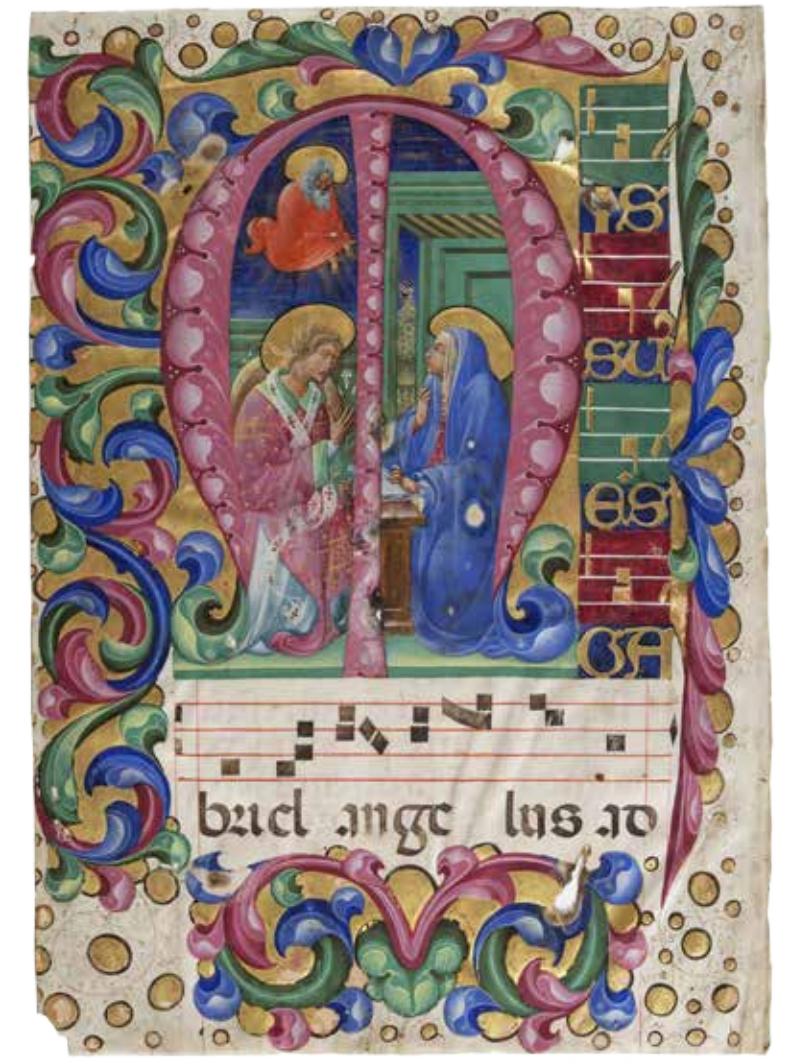 M
IS
SU
ES
GA
briel ange lus ad